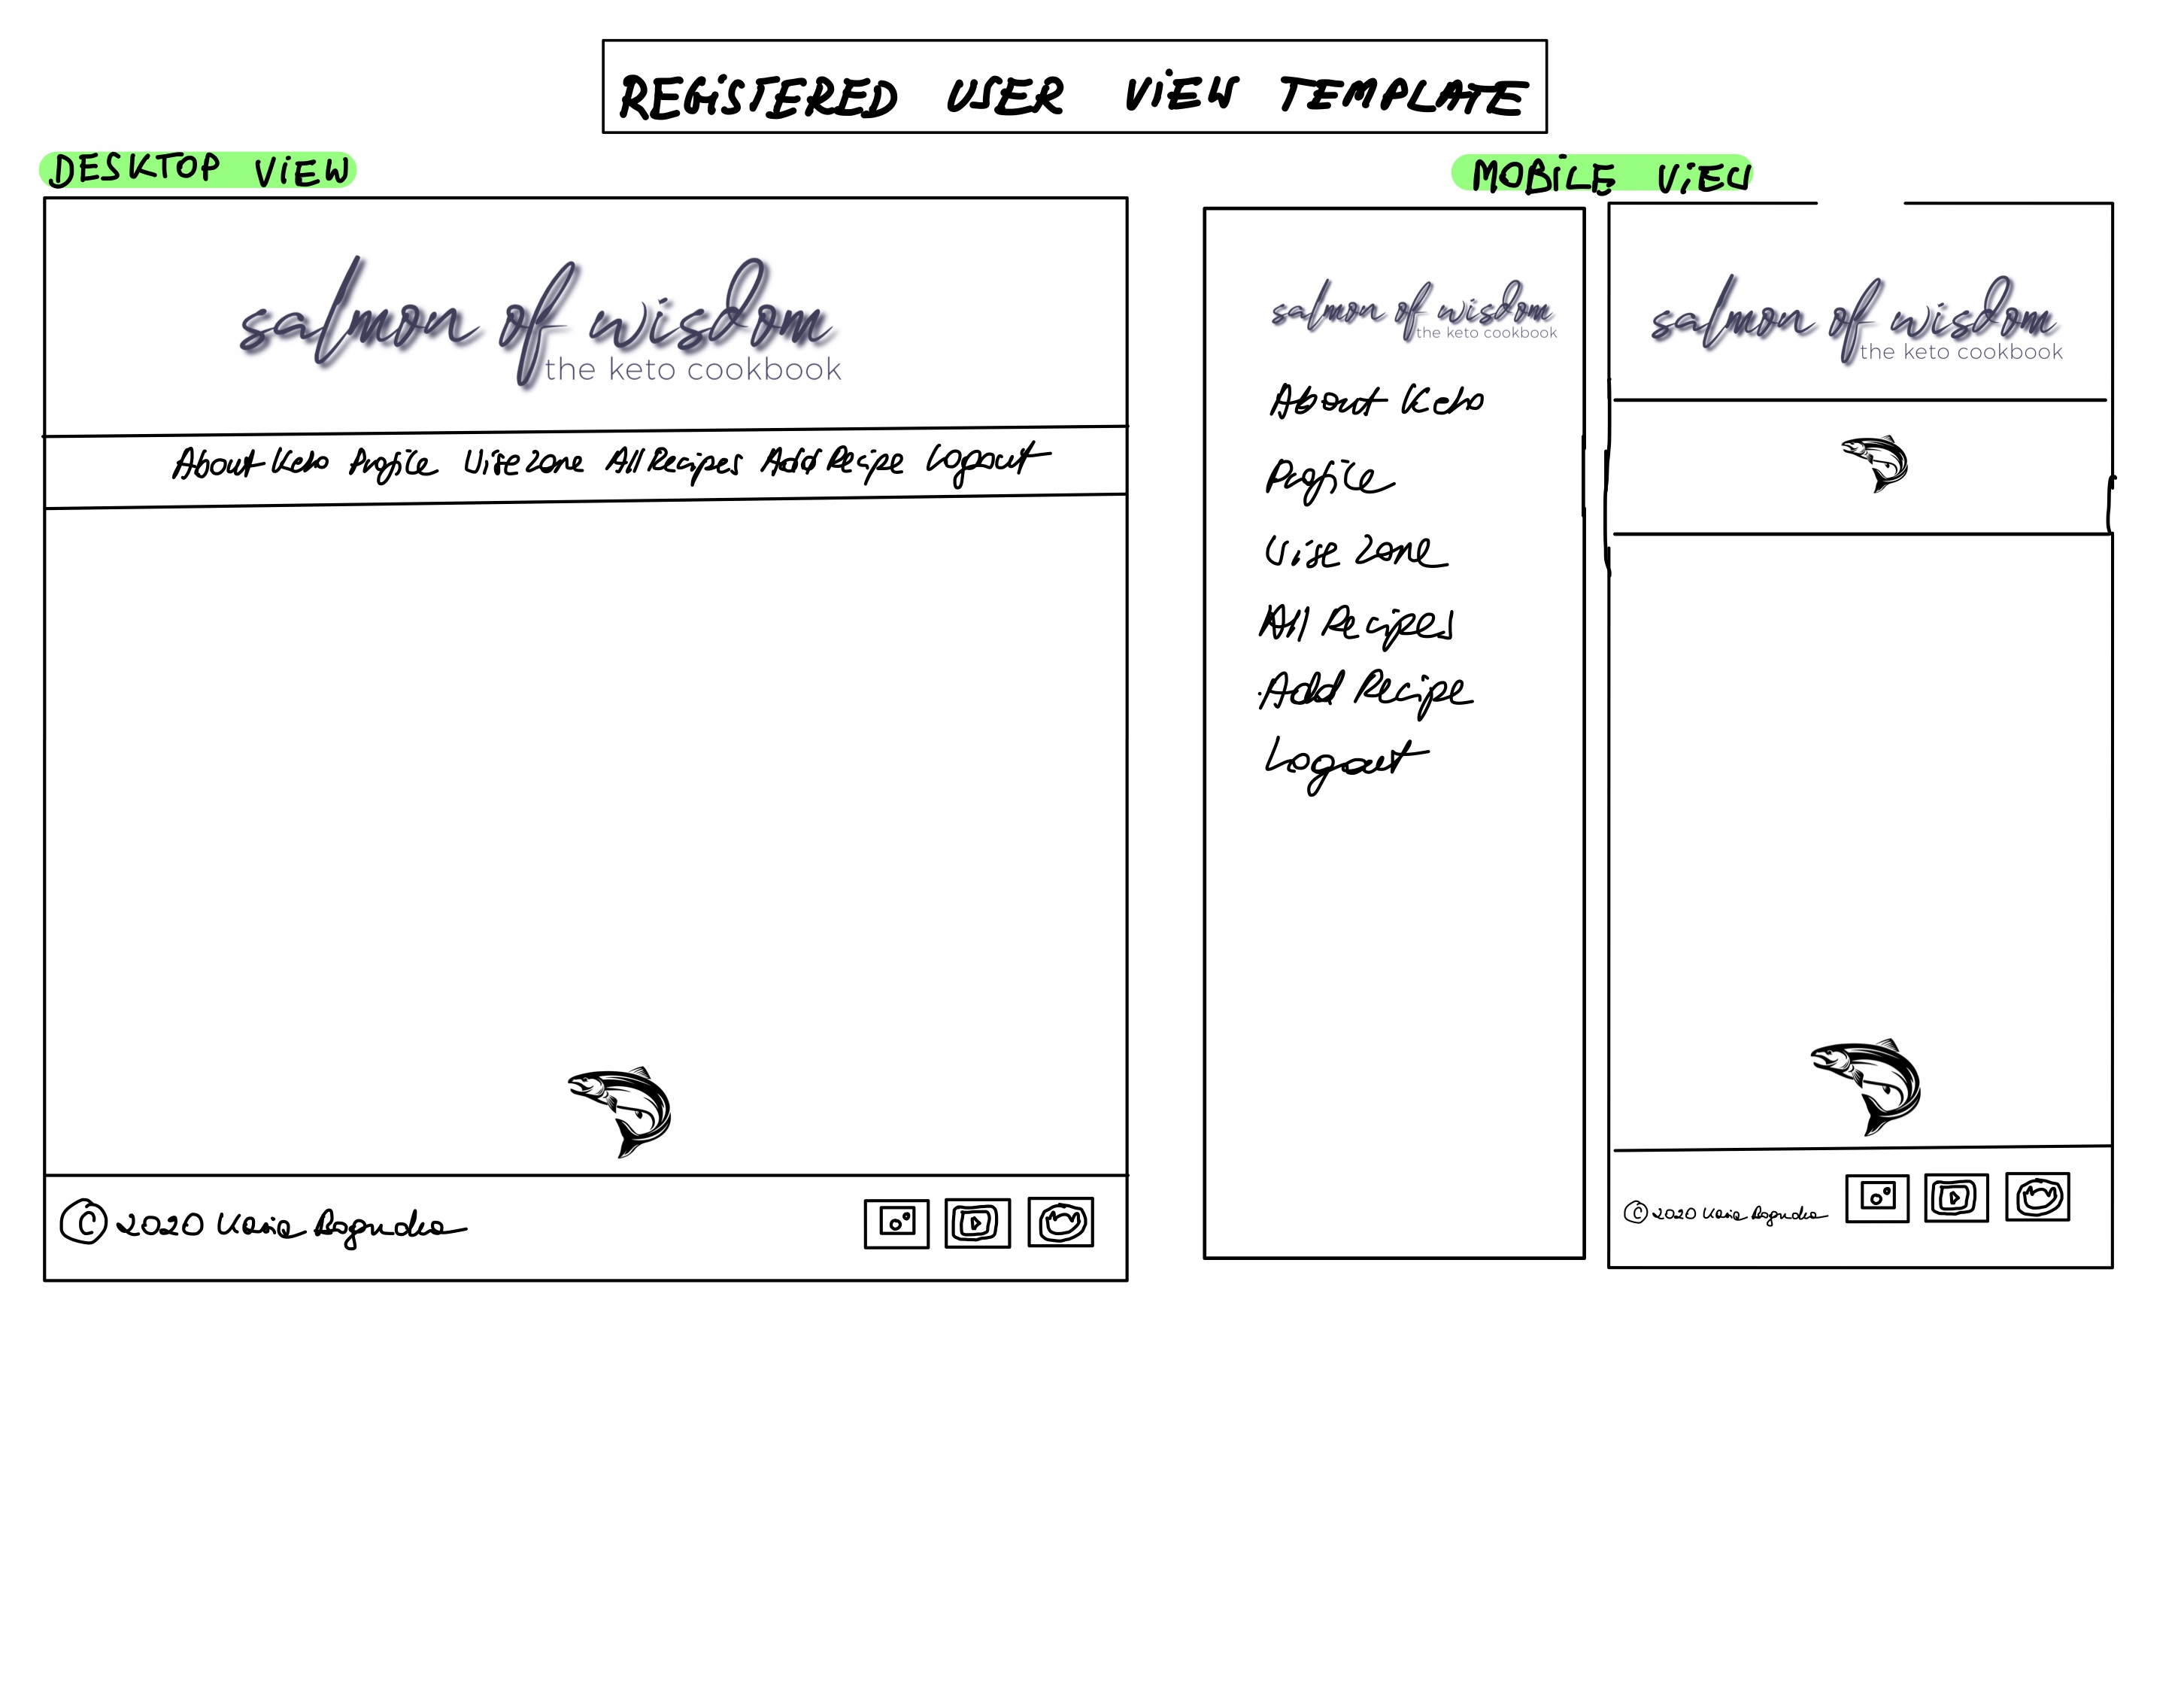 REGiSTERED USER ViEW TEMPLATE
DESKTOP ViEW
MOBiLE ViEW
salmon of wisdom
the keto cookbook
About Keto Profile Wise Zone All Recipes Add Recipe Logout
© 2020 Kasia
salmon of wisdom
the keto cookbook
About Keto
Profile
Wise Zone
All Recipes
Add Recipe
Logout
salmon of wisdom
the keto cookbook
© 2020 Kasia